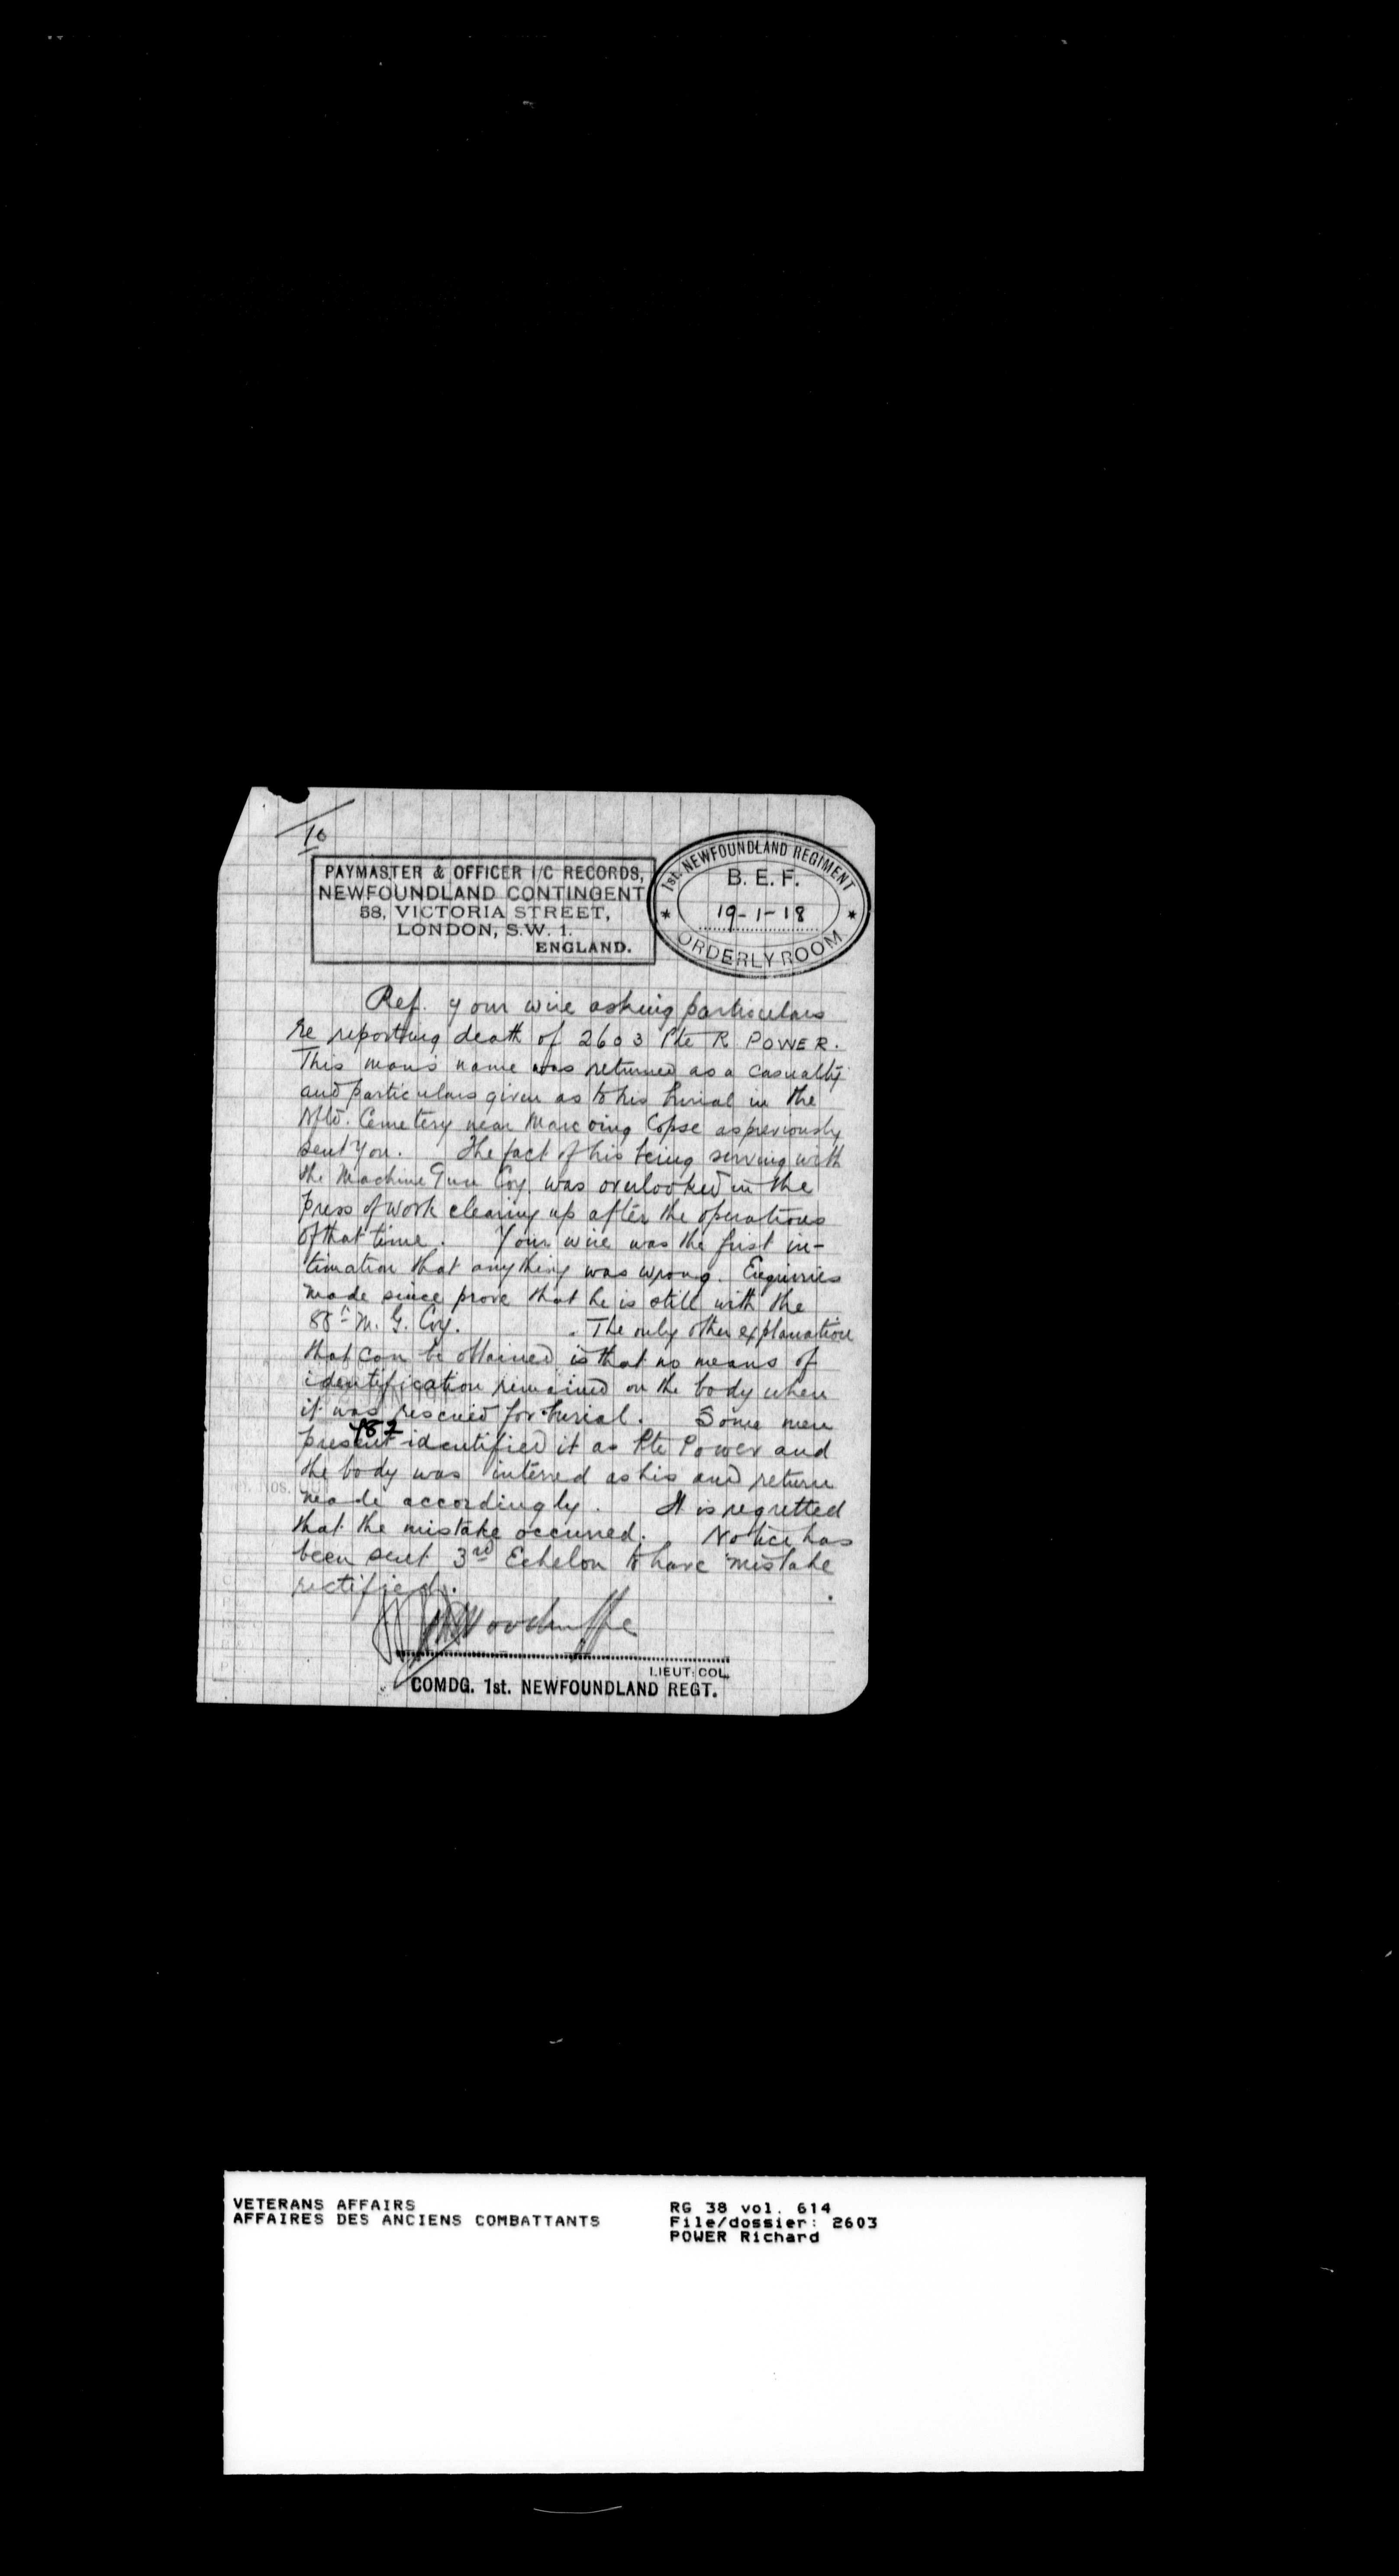 To
PAYMASTER & OFFICER I/C RECORDS,
NEWFOUNDLAND CONTINGENT
58, VICTORIA STREET,
LONDON, S.W. 1.
ENGLAND.
1st. NEWFOUNDLAND REGIMENT
B. E. F.
19-1-18
* ORDERLY ROOM *
Ref. your wire asking particulars
re reporting death of 2603 Pte R POWER.
This man's name was returned as a casualty
and particulars given as to his burial in the
Nfld. Cemetery near Marcoing Copse as previously
sent you. The fact of his being serving with
the Machine Gun Coy. was overlooked in the
press of work clearing up after the operations
of that time. Your wire was the first in-
timation that anything was wrong. Enquiries
made since prove that he is still with the
88th M. G. Coy. . The only other explanation
that can be obtained is that no means of
identification remained on the body when
it was rescued for burial. Some men
482
present identified it as Pte Power and
the body was interred as his and return
made accordingly. It is regretted
that the mistake occurred. Notice has
been sent 3rd Echelon to have mistake
rectified.
LIEUT: COL.
COMDG. 1st. NEWFOUNDLAND REGT.
VETERANS AFFAIRS
AFFAIRES DES ANCIENS COMBATTANTS
RG 38 vol. 614
File/dossier: 2603
POWER Richard